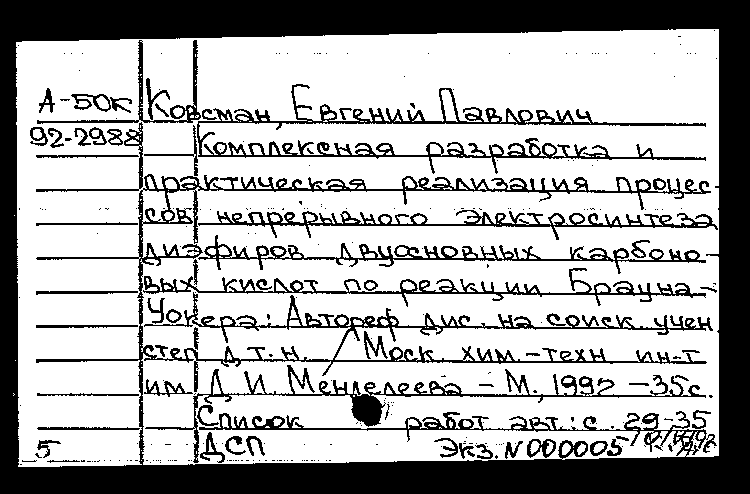 А-50к Ковсман, Евгений Павлович
92-2988 Комплексная разработка и
практическая реализация процес-
сов непрерывного электросинтеза
диэфиров двуосновных карбоно-
вых кислот по реакции Брауна-
Уокера: Автореф дис. на соиск. учен.
степ д.т.н. / Моск. хим.-техн ин-т
им Д И. Менделеева - М., 1992 -35с.
Список работ авт.: с. 29-35
5 ДСП Экз. N 000005